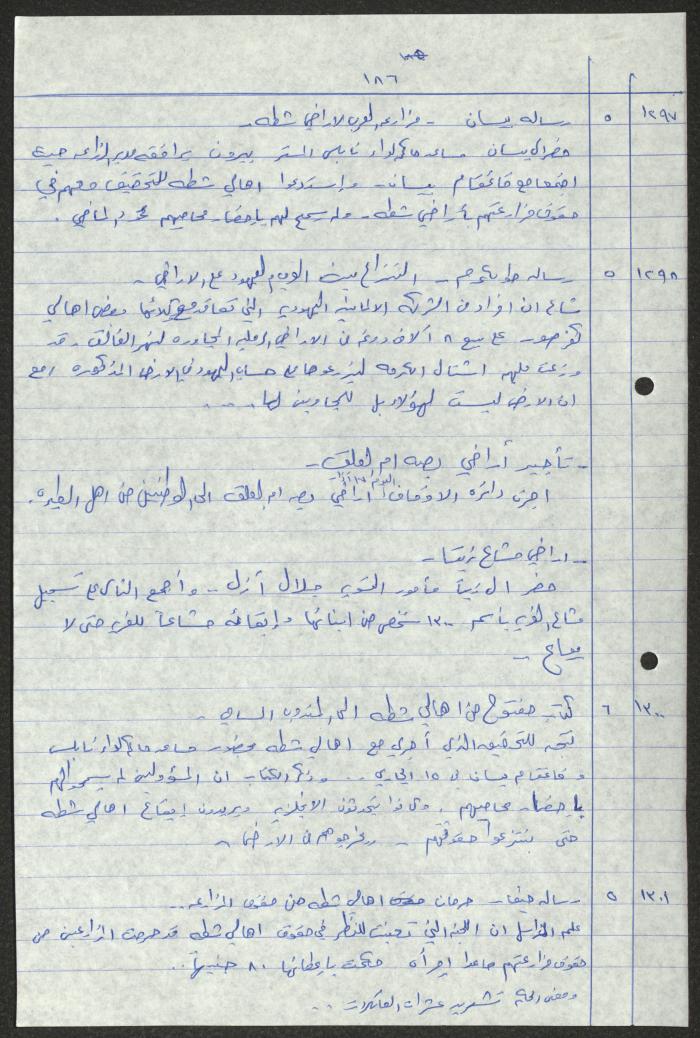 ١٨٦
١٢٩٧ ٥ رساله بيسان - مزارعه العرب لاراضي شطه -
حضر الى بيسان مساعد حاكم لواء نابلس المستر بيرون يرافقه مدير الزراعه حيث
اجتمعا مع قائمقام بيسان - واستدعوا اهالي شطه للتحقيق معهم في
حقوق مزارعتهم بأراضي شطه - ولم يسمح لهم باحضار محاميهم
١٢٩٨ ٥ رساله طولكرم - النزاع بين العرب واليهود على الاراضي -
شاع ان افراد من الشركه الالمانيه اليهوديه التي تعاقد مع وكلائها بعض اهالي
كفر صور على بيع ٨ آلاف دونم من الاراضي الرمليه المجاوره لنهر الفالق - قد
وزعت عليهم اشتال الكرمه ليزرعوها على حساب اليهود في الارض المذكوره مع
ان الارض ليست لهؤلاء بل للمجاورين لها ....
- تأجير أراضي بصه ام العلق -
اجرت دائره الاوقاف أراضي بصه ام العلق الى الوطنيين من اهل الطيره.
- اراضي مشاع زيتا -
حضر الى زيتا مأمور التسويه جلال أزل - وأجمع الناس على تسجيل
مشاع القريه بأسم ١٣٠٠ شخص من ابنائها وإبقائه مشاعاً للقريه حتى لا
يباع -
١٣٠٠ ٦ كتاب مفتوح من اهالي شطه الى المندوب السامي -
نتيجه للتحقيق الذي أجري مع اهالي شطه بحضور مساعد حاكم لواء نابلس
وقائمقام بيسان في ١٥ الجاري .. وذكر الكتاب ان المسؤولين لم يسمحوا لهم
باحضار محاميهم . وكانوا يتحدثون الانجليزيه ويريدون إيقاع اهالي شطه
حتى ينتزعوا حقوقهم - ويخرجوهم من الارض -
١٣٠١ ٥ رساله حيفا - حرمان اهالي شطه من حقوق الزراعه ..
علم المراسل ان اللجنه التي تعينت للنظر في حقوق اهالي شطه قد حرمت المزارعين من
حقوق مزارعتهم ماعدا امرأه حكمت باعطائها ٨٠ جنيهاً ..
ومعنى الحكم تشريد عشرات العائلات ..